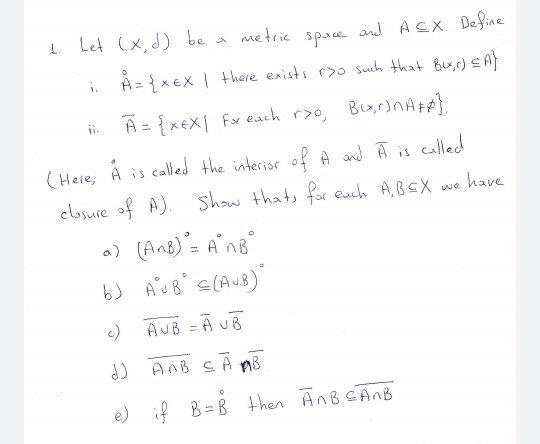 1. Let (X,d) be a metric space and A ⊆ X. Define
i. Å = {x∈X | there exists r>0 such that B(x,r) ⊆ A}
ii. A̅ = {x∈X | For each r>0, B(x,r)∩A≠∅}.
(Here, Å is called the interior of A and A̅ is called
closure of A). Show that, for each A,B⊆X we have
a) (A∩B)° = A° ∩ B°
b) A° ∪ B° ⊆ (A∪B)°
c) \overline{A∪B} = A̅ ∪ B̅
d) \overline{A∩B} ⊆ A̅ ∩ B̅
e) if B = B̊ then A̅∩B ⊆ \overline{A∩B}